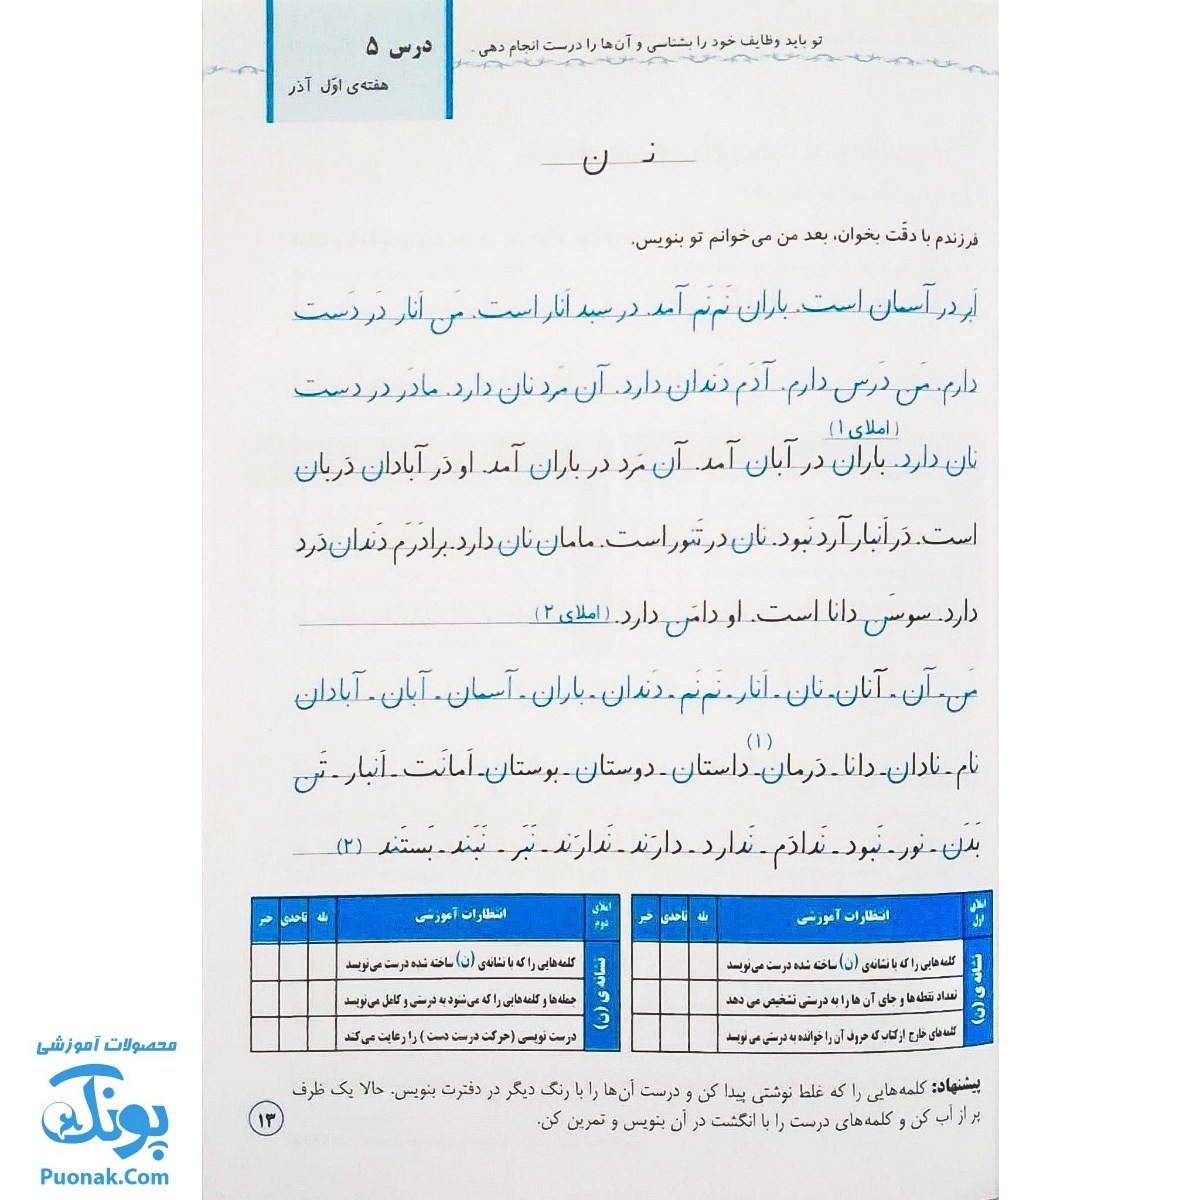 تو باید وظایف خود را بشناسی و آن‌ها را درست انجام دهی.
درس ۵
هفته‌ی اوّل آذر
نـ ن
فرزندم با دقّت بخوان، بعد من می‌خوانم تو بنویس.
اَبر در آسمان است. باران نَم‌نَم آمد. در سبد اَنار است. مَن اَنار دَر دَست
دارم. مَن دَرس دارم. آدَم دَندان دارد. آن مَرد نان دارد. مادَر در دست
(املای ۱)
نان دارد. باران در آبان آمد. آن مَرد در باران آمد. او دَر آبادان دَربان
است. دَر اَنبار آرد نَبود. نان در تَنور است. مامان نان دارد. برادَرَم دَندان دَرد
دارد. سوسَن دانا است. او دامَن دارد. (املای ۲)
مَن ـ آن ـ آنان ـ نان ـ اَنار ـ نَم‌نَم ـ دَندان ـ باران ـ آسمان ـ آبان ـ آبادان
(۱)
نام ـ نادان ـ دانا ـ دَرمان ـ داستان ـ دوستان ـ بوستان ـ اَمانَت ـ اَنبار ـ تَن
بَدَن ـ نور ـ نَبود ـ نَدادَم ـ نَدارد ـ دارَند ـ نَدارَند ـ نَبَر ـ نَبَند ـ بَستَند (۲)
املای اول انتظارات آموزشی بله تاحدی خیر
نشانه ی (ن)
کلمه‌هایی را که با نشانه‌ی (ن) ساخته شده درست می‌نویسد
تعداد نقطه‌ها و جای آن ها را به درستی تشخیص می دهد
کلمه‌های خارج از کتاب که حروف آن را خوانده به درستی می نویسد
املای دوم انتظارات آموزشی بله تاحدی خیر
نشانه ی (ن)
کلمه‌هایی را که با نشانه‌ی (ن) ساخته شده درست می‌نویسد
جمله‌ها و کلمه‌هایی را که می‌شنود به درستی و کامل می‌نویسد
درست نویسی (حرکت درست دست) را رعایت می‌کند
پیشنهاد: کلمه‌هایی را که غلط نوشتی پیدا کن و درست آن‌ها را با رنگ دیگر در دفترت بنویس. حالا یک ظرف
پر از آب کن و کلمه‌های درست را با انگشت در آن بنویس و تمرین کن.
۱۳
محصولات آموزشی
پونک
Puonak.Com